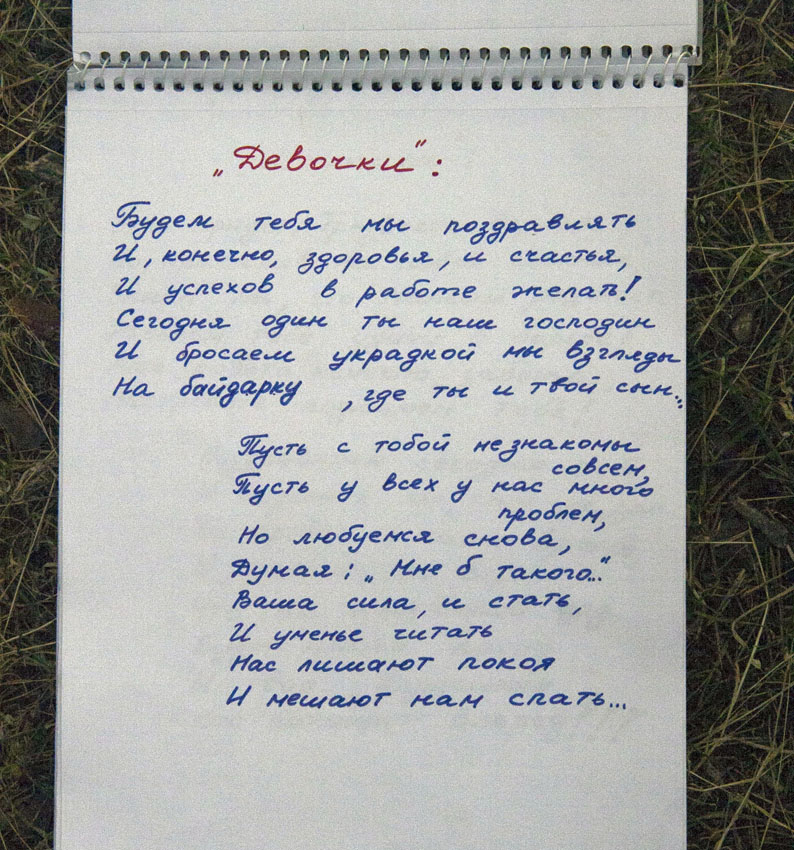 „Девочки":
Будем тебя мы поздравлять
И, конечно, здоровья, и счастья,
И успехов в работе желать!
Сегодня один ты наш господин
И бросаем украдкой мы взгляды
На байдарку, где ты и твой сын...
Пусть с тобой незнакомы
совсем,
Пусть у всех у нас много
проблем,
Но любуемся снова,
Думая: „Мне б такого..."
Ваша сила, и стать,
И уменье читать
Нас лишают покоя
И мешают нам спать...